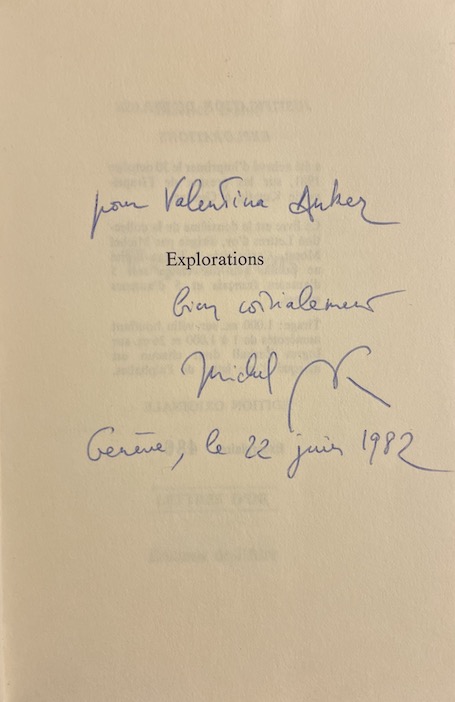 pour Valentina Anker
Explorations
bien cordialement
Michel
Genève, le 22 juin 1982